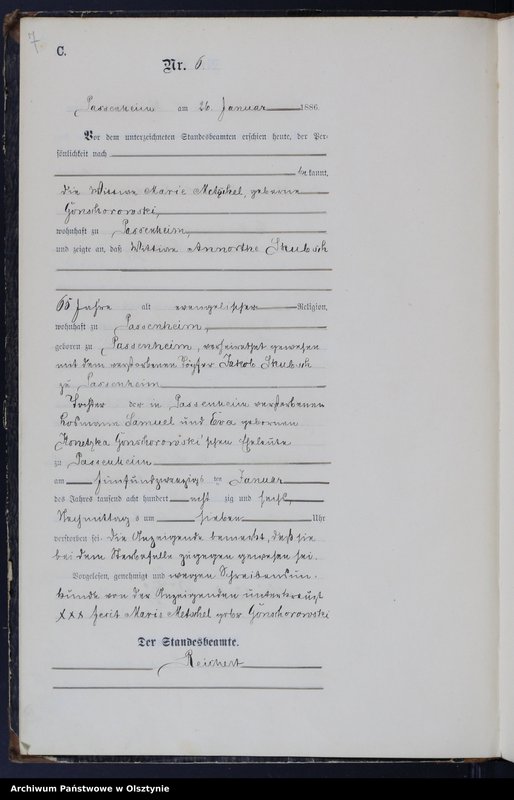 7.
C.
Nr. 6
Passenheim am 26. Januar 1886.
Vor dem unterzeichneten Standesbeamten erschien heute, der Per-
sönlichkeit nach
bekannt,
die Wittwe Marie Metschel, geborene
Gonschorowski,
wohnhaft zu Passenheim,
und zeigte an, daß Wittwe Annorthe Skubsch
65 Jahre alt evangelischer Religion,
wohnhaft zu Passenheim,
geboren zu Passenheim, verheirathet gewesen
mit dem verstorbenen Töpfer Jakob Skubsch
zu Passenheim
Tochter der in Passenheim verstorbenen
Losmann Samuel und Eva geborenen
Konetzka Gonschorowski'schen Eheleute
zu Passenheim
am fünfundzwanzigsten Januar
des Jahres tausend acht hundert achtzig und sechs,
Nachmittags um sieben Uhr
verstorben sei. Die Anzeigende bemerkt, daß sie
bei dem Sterbefalle zugegen gewesen sei.
Vorgelesen, genehmigt und wegen Schreibensun-
kunde von der Anzeigenden unterkreuzt
xxx heißt Marie Metschel gebr. Gonschorowski
Der Standesbeamte.
Reichert
Archiwum Państwowe w Olsztynie